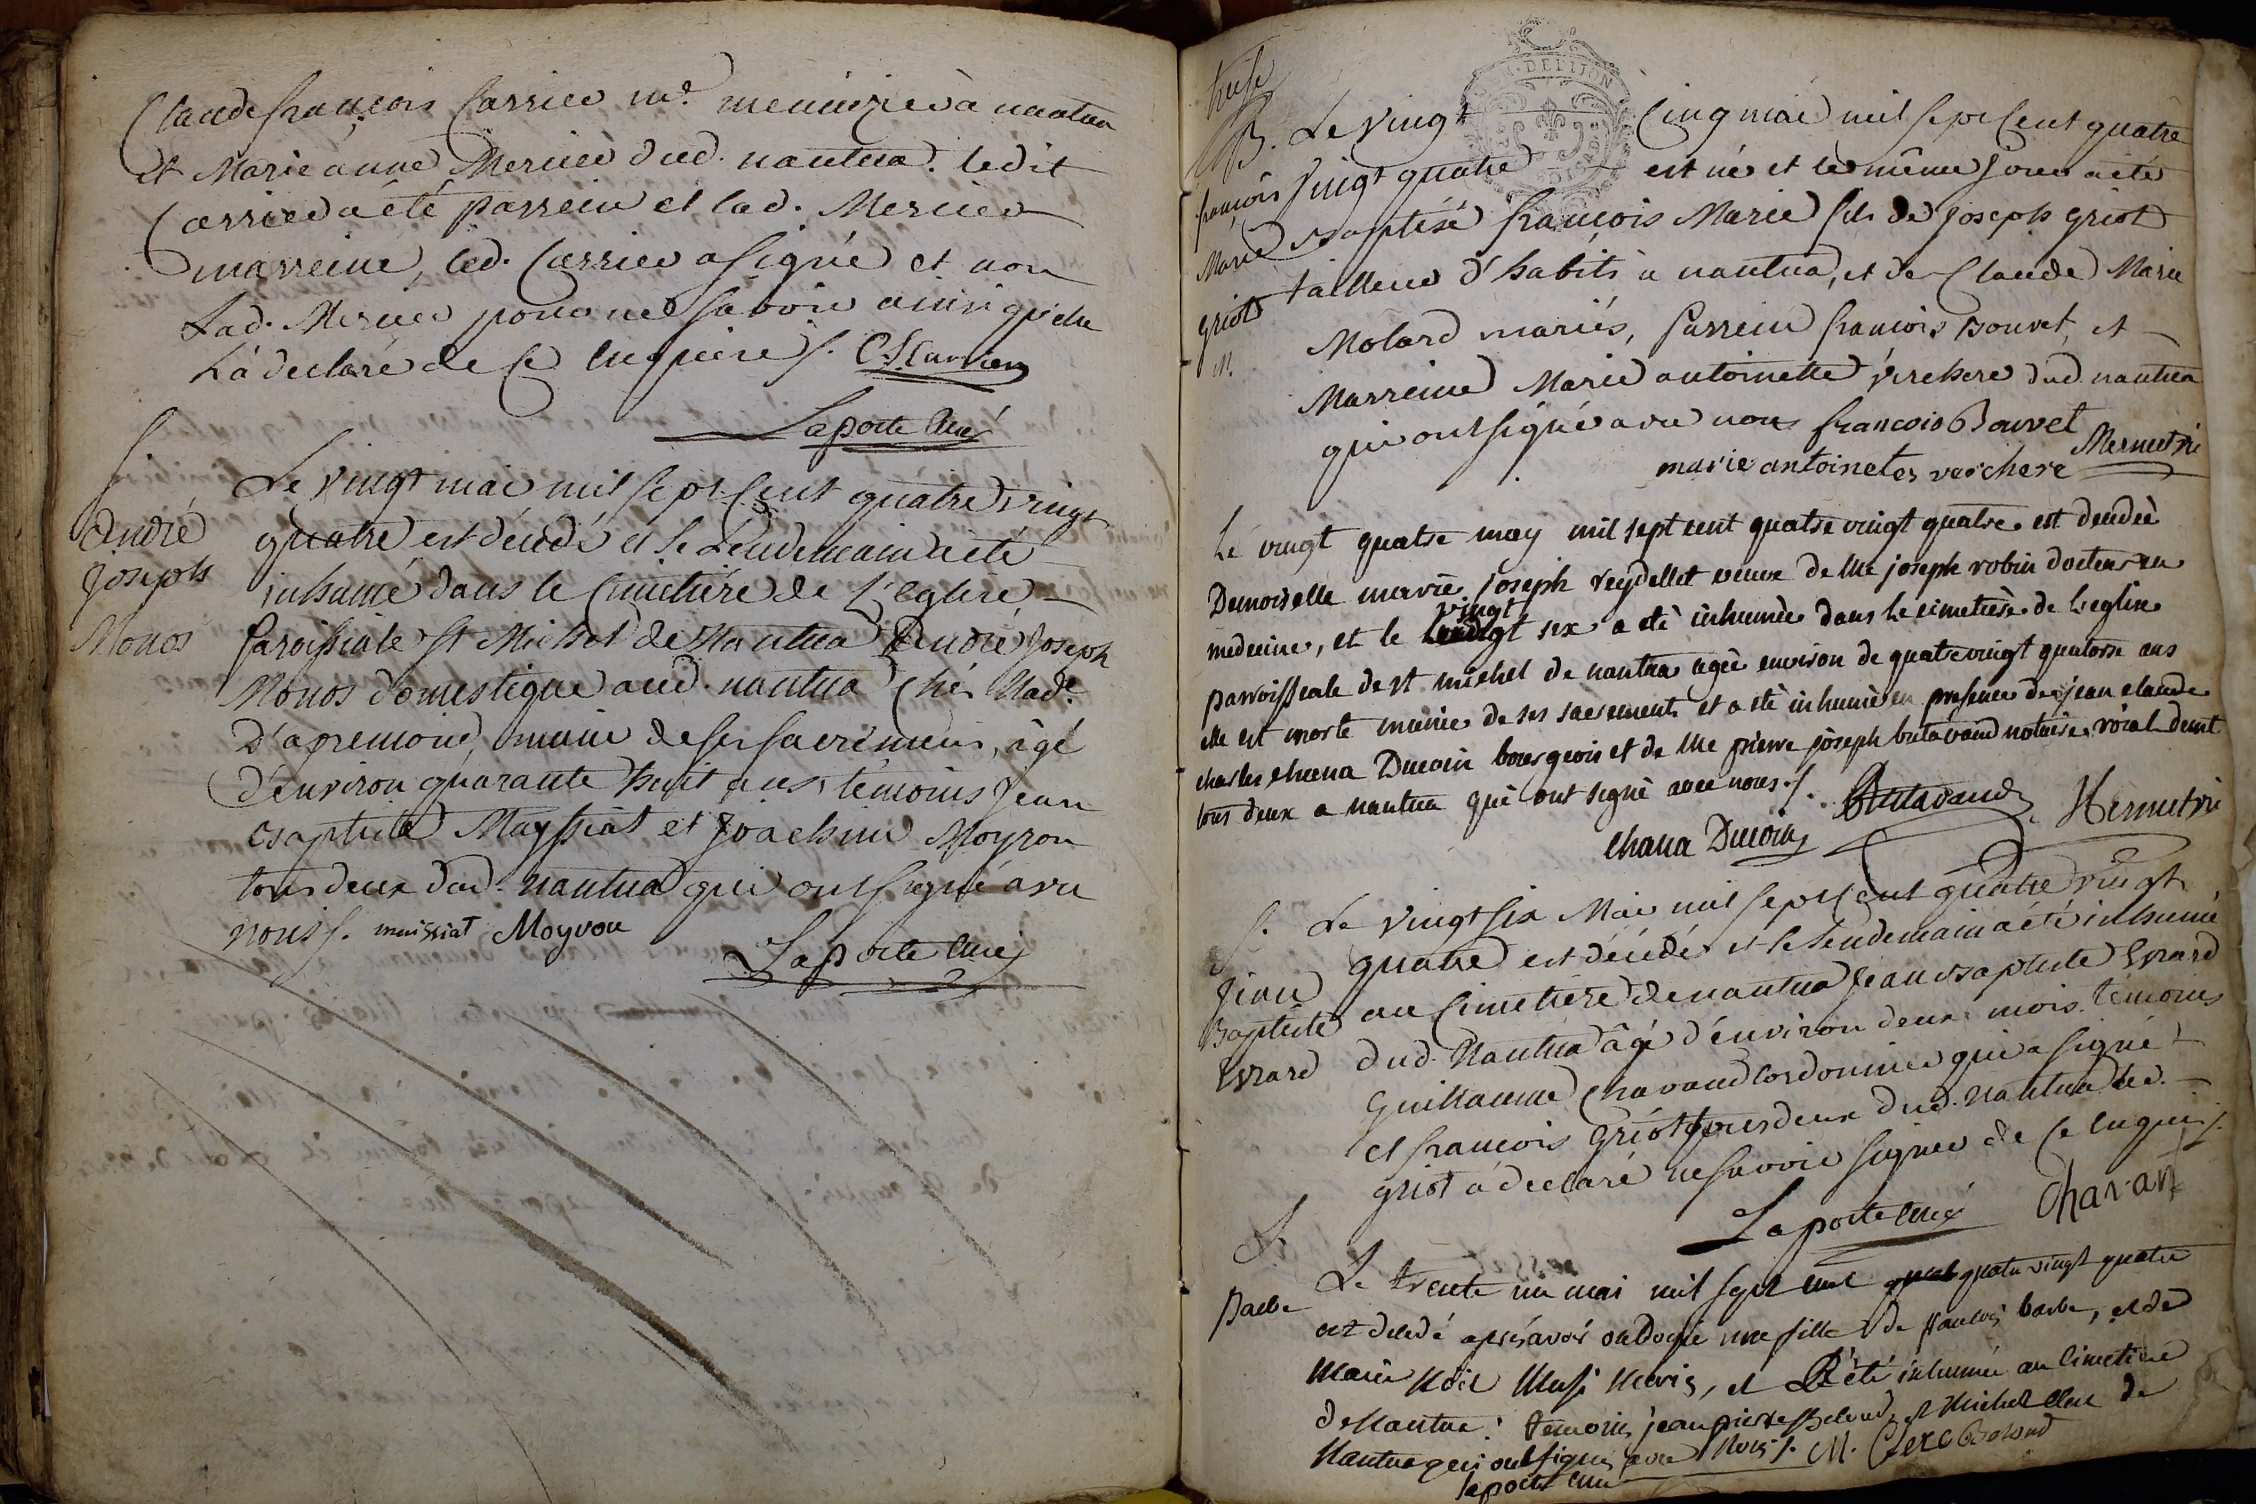 Claude françois Carrier md. menuizier à nantua
et Marie anne Mercier dud. nantua. ledit
Carrier a été parrein et lad. Mercier
marreine, led. Carrier a signé et non
Lad. Mercier pour ne savoir ainsi qu'elle
L'a déclaré de ce enquise /. C. f. Carrier
Laporte Curé
S.
André
Joseph
Monos
Le vingt mai mil sept cent quatre vingt
quatre est décédé et le Lendemain a été
inhumé dans le Cimetière de L'eglise
Paroissiale St Michel de Nantua André Joseph
Monos domestique aud. nantua chés Made.
D'apremont, muni de ses sacremens, âgé
d'environ quarante huit ans, témoins Jean
Baptiste Mayssiat et Joachim Moyron
tous deux dud. nantua qui ont signé avec
nous /. maissiat Moyron
Laporte Curé
B.
françois
Marie
Griot
M.
Le vingt Cinq mai mil sept Cent quatre
vingt quatre est né et le même jour a été
Baptisé françois Marie fils de Joseph Griot
tailleur d'habits à nantua, et de Claude Marie
Molard mariés, Parrein françois Bouvet, et
Marreine Marie antoinette verchere dud. nantua
qui ont signé avec nous francois Bouvet
marie antoinetes verchere Mermetvi
Le vingt quatre may mil sept cent quatre vingt quatre est decedée
Demoiselle marie joseph reydellet veuve de Me joseph robin docteur en
medecine, et le vingt six a eté inhumée dans le cimetière de l'eglise
parroissiale de st michel de nantua agée environ de quatrevingt quatorse ans
elle est morte munie de ses sacrements et a eté inhumée en presence de jean claude
charles chana Ducoin bourgeois et de Me pierre joseph butavand notaire roial demt
tous deux a nantua qui ont signé avec nous /. Butavand
chana Ducoin Mermetvi
S.
Jean
Baptiste
Evrard
Le vingt six Mai mil sept Cent quatre vingt
quatre est décédé et le Lendemain a été inhumé
au Cimetiere de nantua Jean Baptiste Evrard
dud. Nantua âgé d'environ deux mois. témoins
Guillaume Chavand Cordonnier qui a signé
et françois Griot tous deux dud. nantua led.
griot a déclaré ne savoir signer de ce enquis /.
Laporte Curé Chavan
S.
Barbe
Le trente un mai mil sept cent quatre vingt quatre
est decedé après avoir ondoyé une fille de francois barbe, et de
Marie Mariés, et a été inhumée au Cimetiere
de Nantua: temoins jean pierre Beloud et Michel Clerc de
Nantua qui ont signés avec Nous /. M. Clerc Beloud
laporte Curé